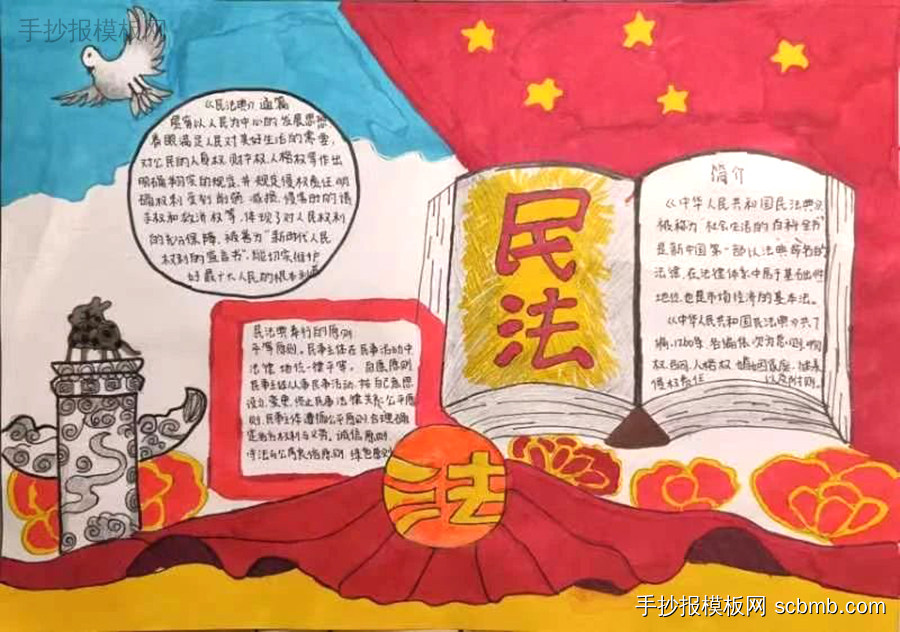 手抄报模板网
《民法典》通篇
贯有以人民为中心的发展思想
着眼满足人民对美好生活的需要,
对公民的人身权.财产权.人格权等作出
明确翔实的规定,并规定侵权责任,明
确权利受到削弱.减损.侵害时的请
求权和救济权等,体现了对人民权利
的充分保障,被誉为"新时代人民
权利的宣言书",能切实维护
好最广大人民的根本利益
民法
简介
《中华人民共和国民法典》
被称为"社会生活的百科全书"
是新中国第一部以法典命名的
法律,在法律体系中居于基础性
地位,也是市场经济的基本法。
《中华人民共和国民法典》共7
编,1260条,各编依次为总则.物
权.合同.人格权.婚姻家庭.继承
侵权责任以及附则。
民法典奉行的原则
平等原则。民事主体在民事活动中
法律地位一律平等。自愿原则
民事主体从事民事活动,按自己意愿
设立.变更.终止民事法律关系.公平原
则.民事主体遵循公平原则合理确
定各方权利与义务。诚信原则.
守法与公序良俗原则.绿色原则
法
手抄报模板网 scbmb.com